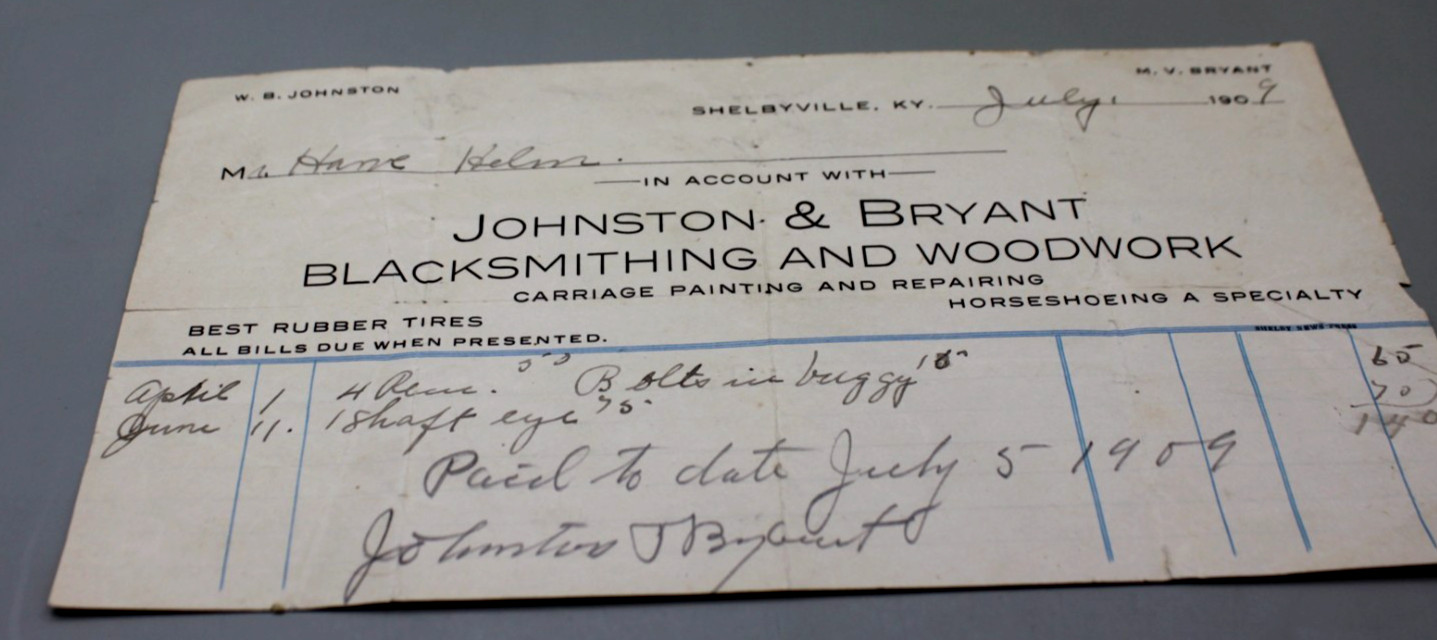 W. B. JOHNSTON M. V. BRYANT
SHELBYVILLE, KY. July, 1909
Mr. Hanc Helm.
IN ACCOUNT WITH
JOHNSTON & BRYANT
BLACKSMITHING AND WOODWORK
CARRIAGE PAINTING AND REPAIRING
HORSESHOEING A SPECIALTY
BEST RUBBER TIRES
ALL BILLS DUE WHEN PRESENTED.
SHELBY NEWS PRESS
April 1 4 Rem. 50 Bolts in buggy 15 65
June 11. 1 Shaft eye 75
Paid to date July 5 1909
Johnston & Bryant